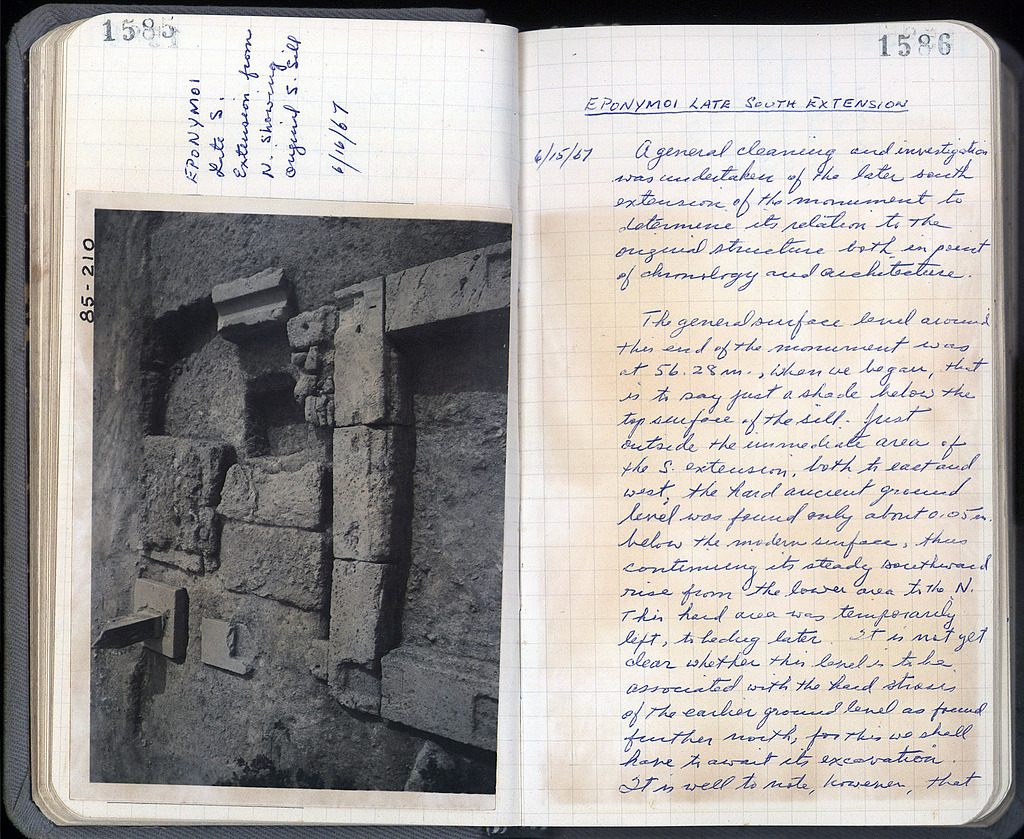 1585
EPONYMOI
Late S.
Extension from
N. Showing
Original S. Sill
6/16/67
85-210
1586
EPONYMOI LATE SOUTH EXTENSION
6/15/67 A general cleaning and investigation
was undertaken of the later south
extension of the monument to
determine its relation to the
original structure both in point
of chronology and architecture.
The general surface level around
this end of the monument was
at 56.28 m., when we began, that
is to say just a shade below the
top surface of the sill. Just
outside the immediate area of
the S. extension, both to east and
west, the hard ancient ground
level was found only about 0.05 m.
below the modern surface, thus
continuing its steady southward
rise from the lower area to the N.
This hard area was temporarily
left, to be dug later. It is not yet
clear whether this level is to be
associated with the hard strosis
of the earlier ground level as found
further north; for this we shall
have to await its excavation.
It is well to note, however, that